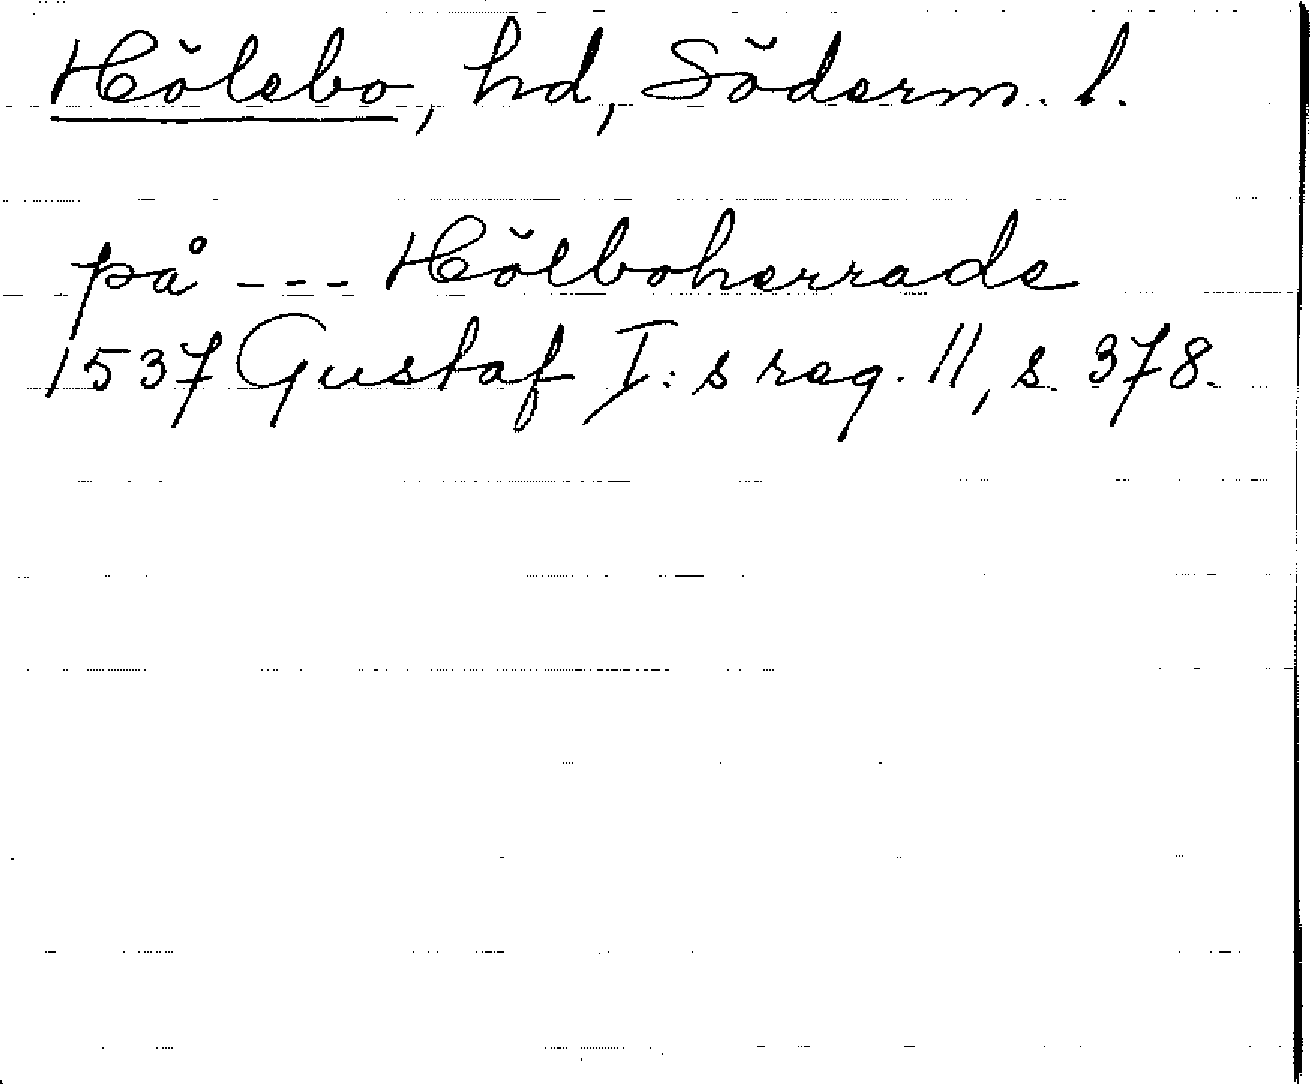 Hölebo, hd, Söderm. l.
på --- Hölboherrade
1537 Gustaf I:s reg. 11, s. 378.